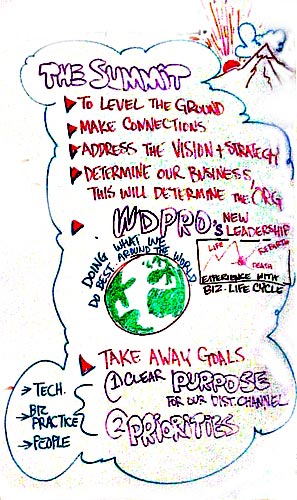 THE SUMMIT
TO LEVEL THE GROUND
MAKE CONNECTIONS
ADDRESS THE VISION + STRATEGY
DETERMINE OUR BUSINESS,
THIS WILL DETERMINE THE ORG
WDPRO'S NEW
LEADERSHIP
DOING WHAT WE
DO BEST AROUND THE WORLD
LIFE
REBIRTH
DEATH
EXPERIENCE WITH
BIZ. LIFE CYCLE
TAKE AWAY GOALS
1 CLEAR PURPOSE
FOR OUR DIST. CHANNEL
2 PRIORITIES
→ TECH.
→ BIZ
PRACTICE
→ PEOPLE